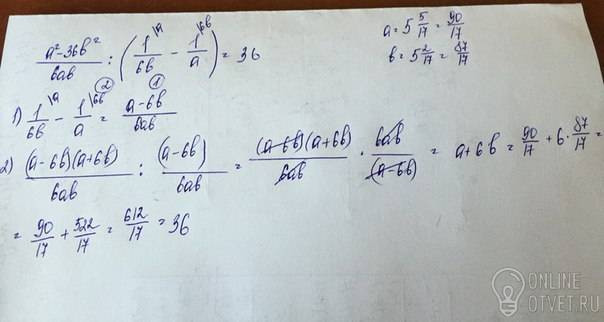 (a² - 36b²)/(6ab) : (1\a/(6b) - 1\6b/a) = 36
a = 5 5/17 = 90/17
b = 5 2/17 = 87/17
② ①
1) 1\a/(6b) - 1\6b/a = (a-6b)/(6ab)
2) (a-6b)(a+6b)/(6ab) : (a-6b)/(6ab) = (a-6b)(a+6b)/(6ab) · 6ab/(a-6b) = a+6b = 90/17 + 6·87/17 =
= 90/17 + 522/17 = 612/17 = 36
ONLINE
OTVET.RU